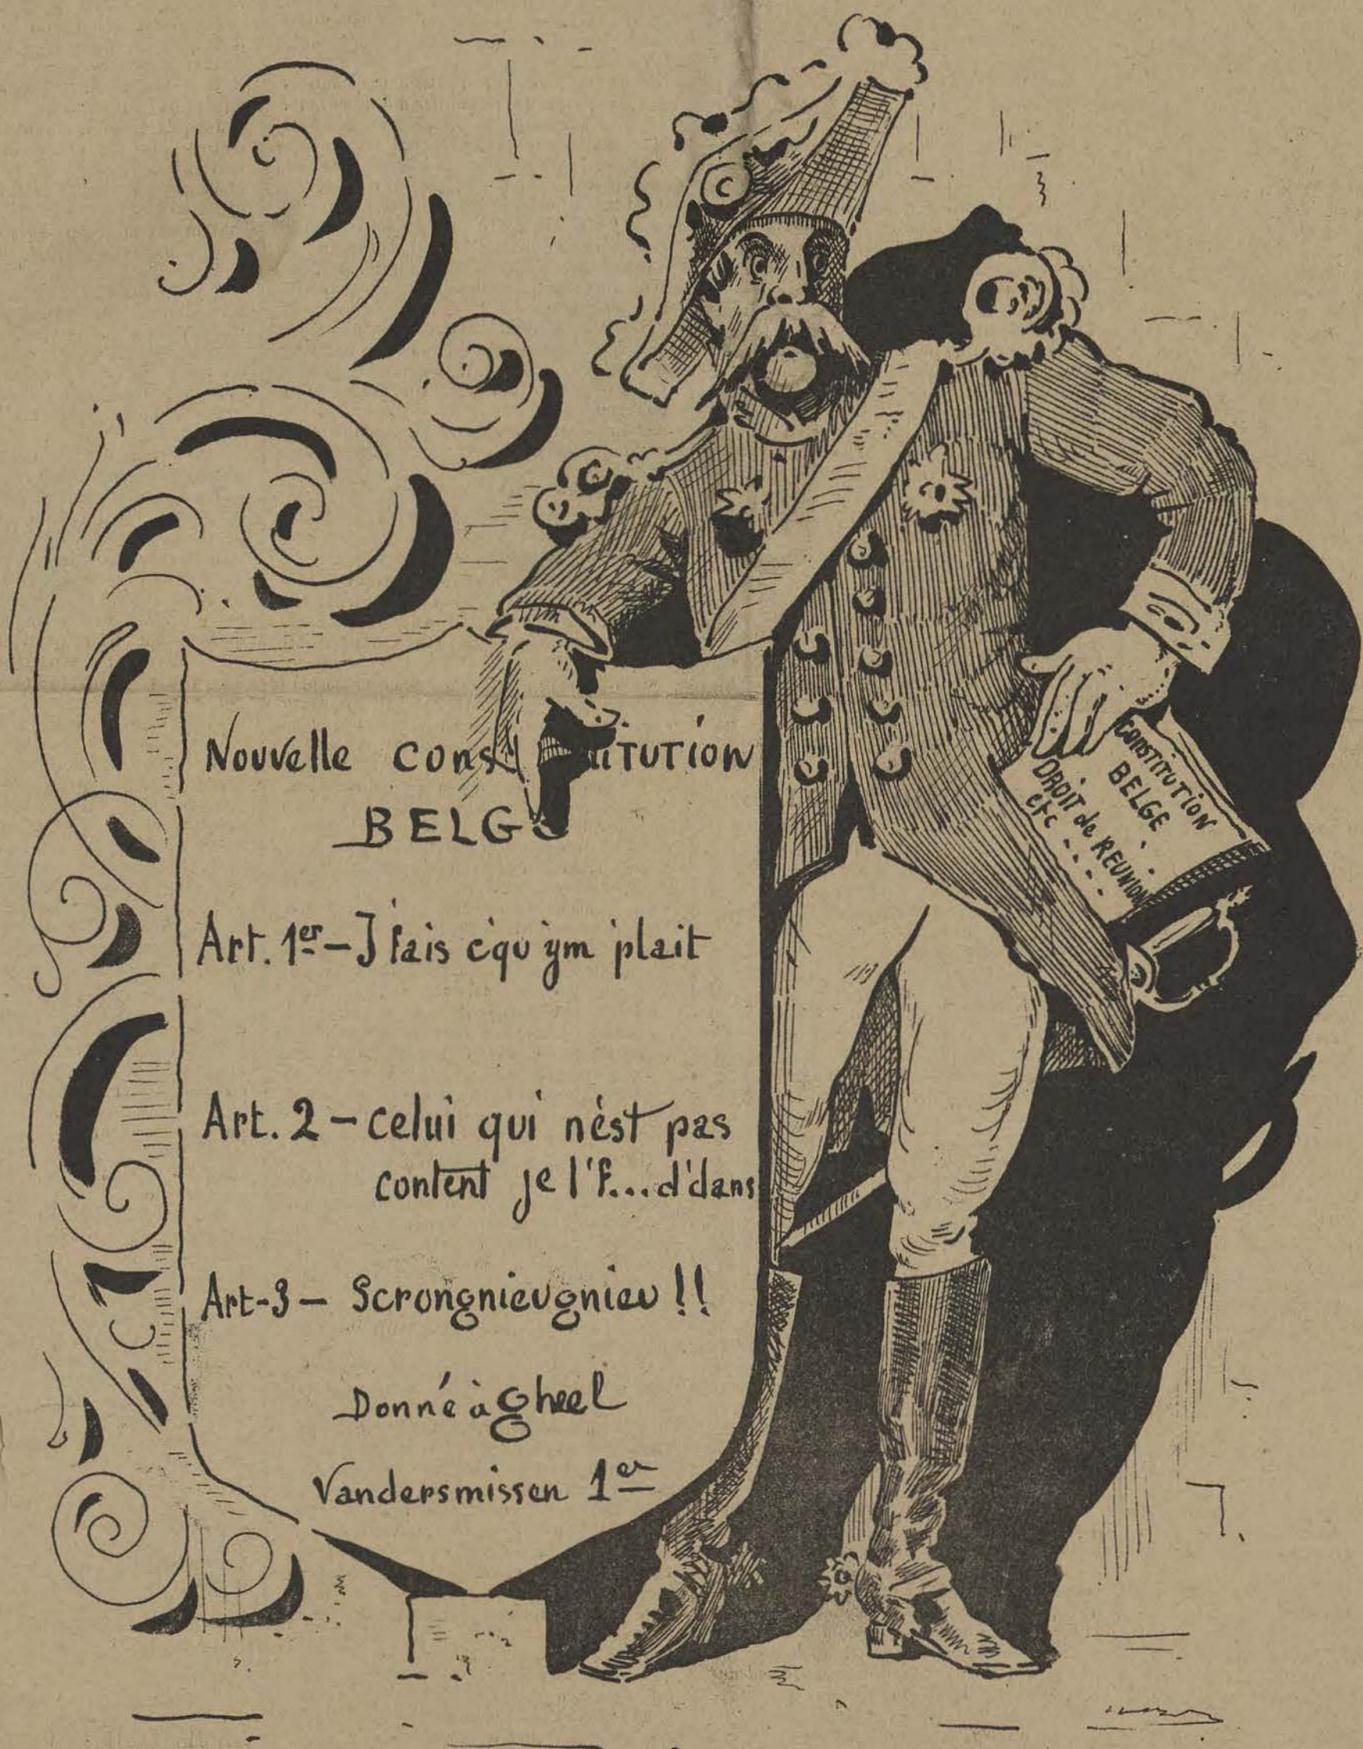 Nouvelle Constitution
BELGE
Art. 1er - J'fais c'qu'ym'plait
Art. 2 - celui qui n'est pas
content je l'f...d'dans
Art-3 - Scrongnieugnieu !!
Donné à Gheel
Vandersmissen 1er
CONSTITUTION
BELGE
DROIT de REUNION
etc....